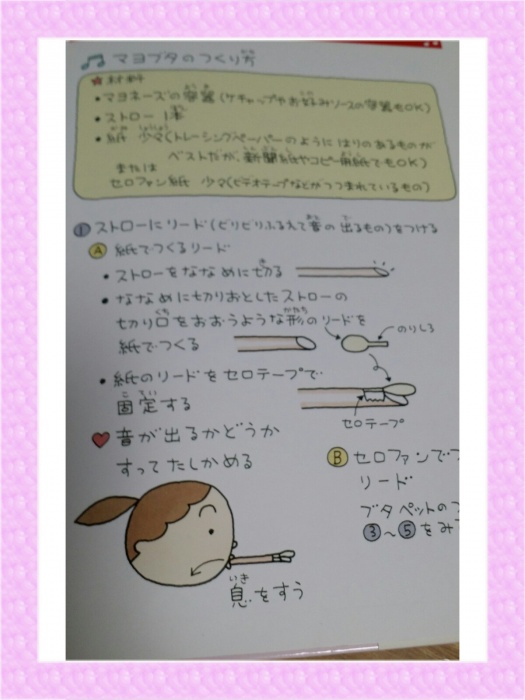 マヨブタのつくり方
材料
・マヨネーズの容器(ケチャップやお好みソースの容器もOK)
・ストロー 1本
・紙 少々(トレーシングペーパーのようにはりのあるものが
ベストだが、新聞紙やコピー用紙でもOK)
または
セロファン紙 少々(ビデオテープなどがつつまれているもの)
① ストローにリード(ビリビリふるえて音の出るもの)をつける
Ⓐ 紙でつくるリード
・ストローをななめに切る
・ななめに切りおとしたストローの
切り口をおおうような形のリードを
紙でつくる
のりしろ
・紙のリードをセロテープで
固定する
セロテープ
♥ 音が出るかどうか
すってたしかめる
Ⓑ セロファンでつ
リード
ブタペットの
③〜⑤をみ
息をすう